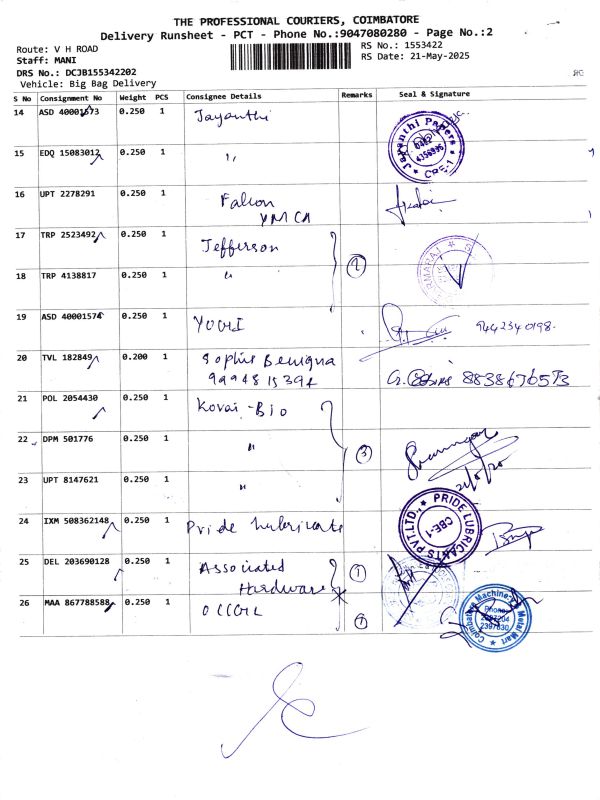 THE PROFESSIONAL COURIERS, COIMBATORE
Delivery Runsheet - PCT - Phone No.:9047080280 - Page No.:2
Route: V H ROAD
RS No.: 1553422
Staff: MANI
RS Date: 21-May-2025
DRS No.: DCJB155342202
Vehicle: Big Bag Delivery
S No Consignment No Weight PCS Consignee Details Remarks Seal & Signature
14 ASD 40001573 0.250 1 Jayanthi
Jayanthi Papers CBE-1
15 EDQ 15083012 0.250 1 "
16 UPT 2278291 0.250 1 Falcon
YMCA
17 TRP 2523492 0.250 1 Jefferson
2
18 TRP 4138817 0.250 1 "
19 ASD 40001574 0.250 1 9442340198.
20 TVL 182849 0.200 1 Sophis Benigna
9994815394 8838676573
21 POL 2054430 0.250 1 Kovai-Bio
22 DPM 501776 0.250 1 "
3
23 UPT 8147621 0.250 1 "
24 IXM 508362148 0.250 1 Pride Lubricants
PRIDE LUBRICANTS PVT.LTD., CBE-1
25 DEL 203690128 0.250 1 Associated
Hardware
1
26 MAA 867788588 0.250 1
1
Coimbatore Machine Metal Mart
Phone:
2397204
2397630